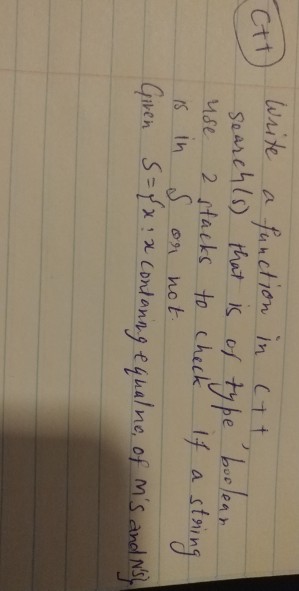 C++
Write a function in C++
search(s) that is of type 'boolean
use 2 stacks to check if a string
is in S or not.
Given S = {x : x containing equal no. of M's and N's}